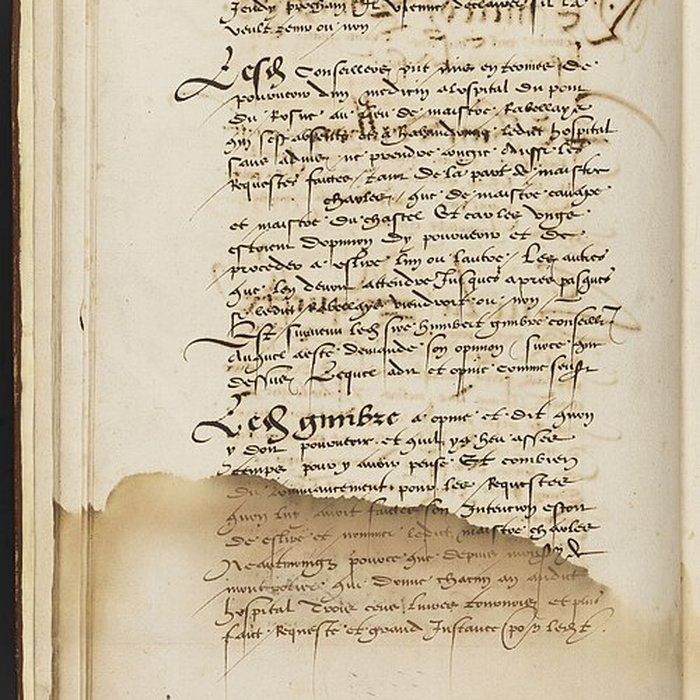 Jeudy prochain Il vienne declairer s'il la
veult tenir ou non
Lesd Conseillers ont mis en termes de
pourveoir dun medicin a lospital du pont
du Rosne au lieu de maistre Rabellays
qui sest absente et a habandonne ledict hospital
sans adviser ne prendre congie Aussi les
Requestes faictes tant de la part de maistre
charles que de maistre canape
et maistre du chastel Et car les ungs
estoient dopinion dy pourveoir et de
proceder a eslire lun ou lautre Les autres
que lon devoit attendre Jusques apres pasques
si ledict Rabellays viendroit ou non
Est survenu led sire humbert gimbre conseillr
Auquel a este demande son opinion surce que
dessus Lequel a dit et opine comme sensuit
Led gimbre a opine et dit quon
y doit pourveoir et quil y a heu assez
temps pour y avoir pense Et combien
du commancement pour les Requestes
quon luy avoit faictes son Intencion estoit
de eslire et nommer ledict maistre charles
Neantmoings pource que depuis monsr de
montrotier qui donne chacun an audict
hospital Trois cens livres tournois et plus
faict Requeste et grand Instance po ledict